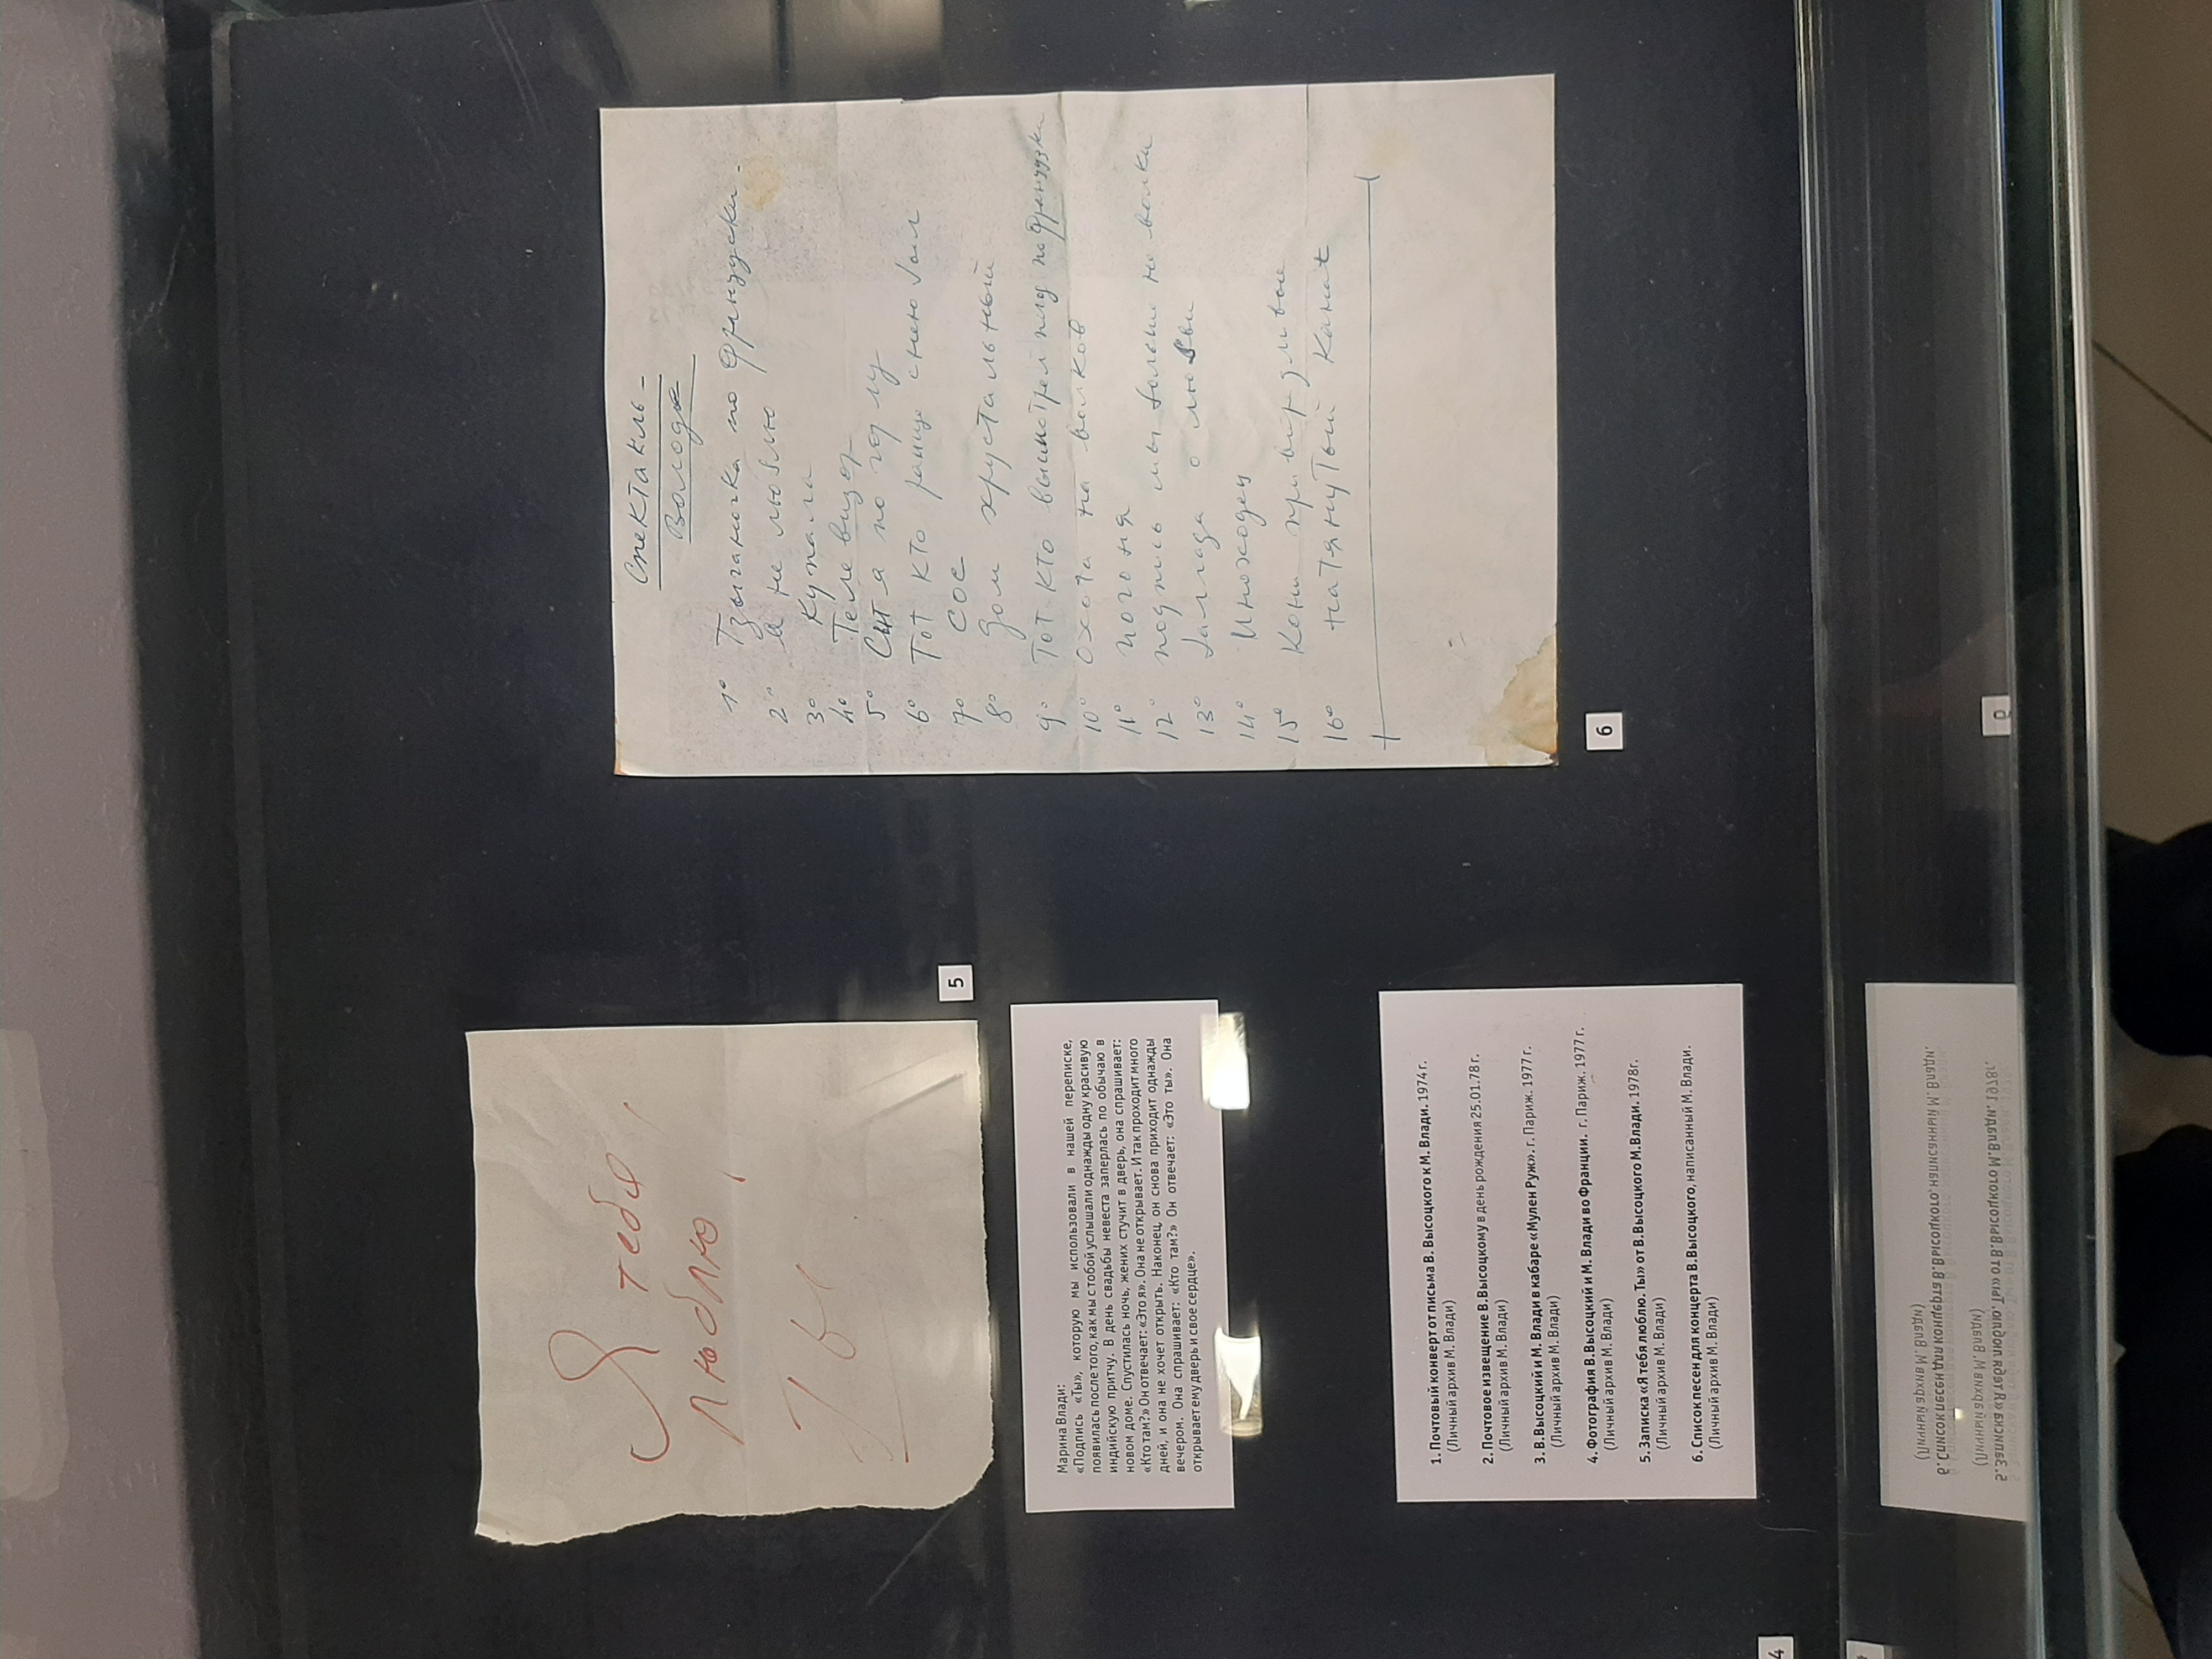 Я тебя
люблю,
Ты
5
Марина Влади:
«Подпись «Ты», которую мы использовали в нашей переписке,
появилась после того, как мы с тобой услышали однажды одну красивую
индийскую притчу. В день свадьбы невеста заперлась по обычаю в
новом доме. Спустилась ночь, жених стучит в дверь, она спрашивает:
«Кто там?» Он отвечает: «Это я». Она не открывает. И так проходит много
дней, и она не хочет открыть. Наконец, он снова приходит однажды
вечером. Она спрашивает: «Кто там?» Он отвечает: «Это ты». Она
открывает ему дверь и свое сердце».
1. Почтовый конверт от письма В. Высоцкого к М. Влади. 1974 г.
(Личный архив М. Влади)
2. Почтовое извещение В.Высоцкому в день рождения 25.01.78 г.
(Личный архив М. Влади)
3. В.Высоцкий и М. Влади в кабаре «Мулен Руж». г. Париж. 1977 г.
(Личный архив М. Влади)
4. Фотография В.Высоцкий и М. Влади во Франции. г. Париж. 1977 г.
(Личный архив М. Влади)
5. Записка «Я тебя люблю. Ты» от В.Высоцкого М.Влади. 1978г.
(Личный архив М. Влади)
6. Список песен для концерта В.Высоцкого, написанный М. Влади.
(Личный архив М. Влади)
4
спектакль -
Володе
1° Тзыганочка по французски -
2° я не люблю
3° купала
4° Телевизор
5° Сыт я по горлу
6° Тот кто раньше с нею был
7° СОС
8° дом хрустальный
9° Тот кто выстрелил по французки
10° охота на волков
11° погоня
12° мы больше не волки
13° баллада о любви
14° Иноходец
15° Кони привередливые
16° натянутый Канат
6